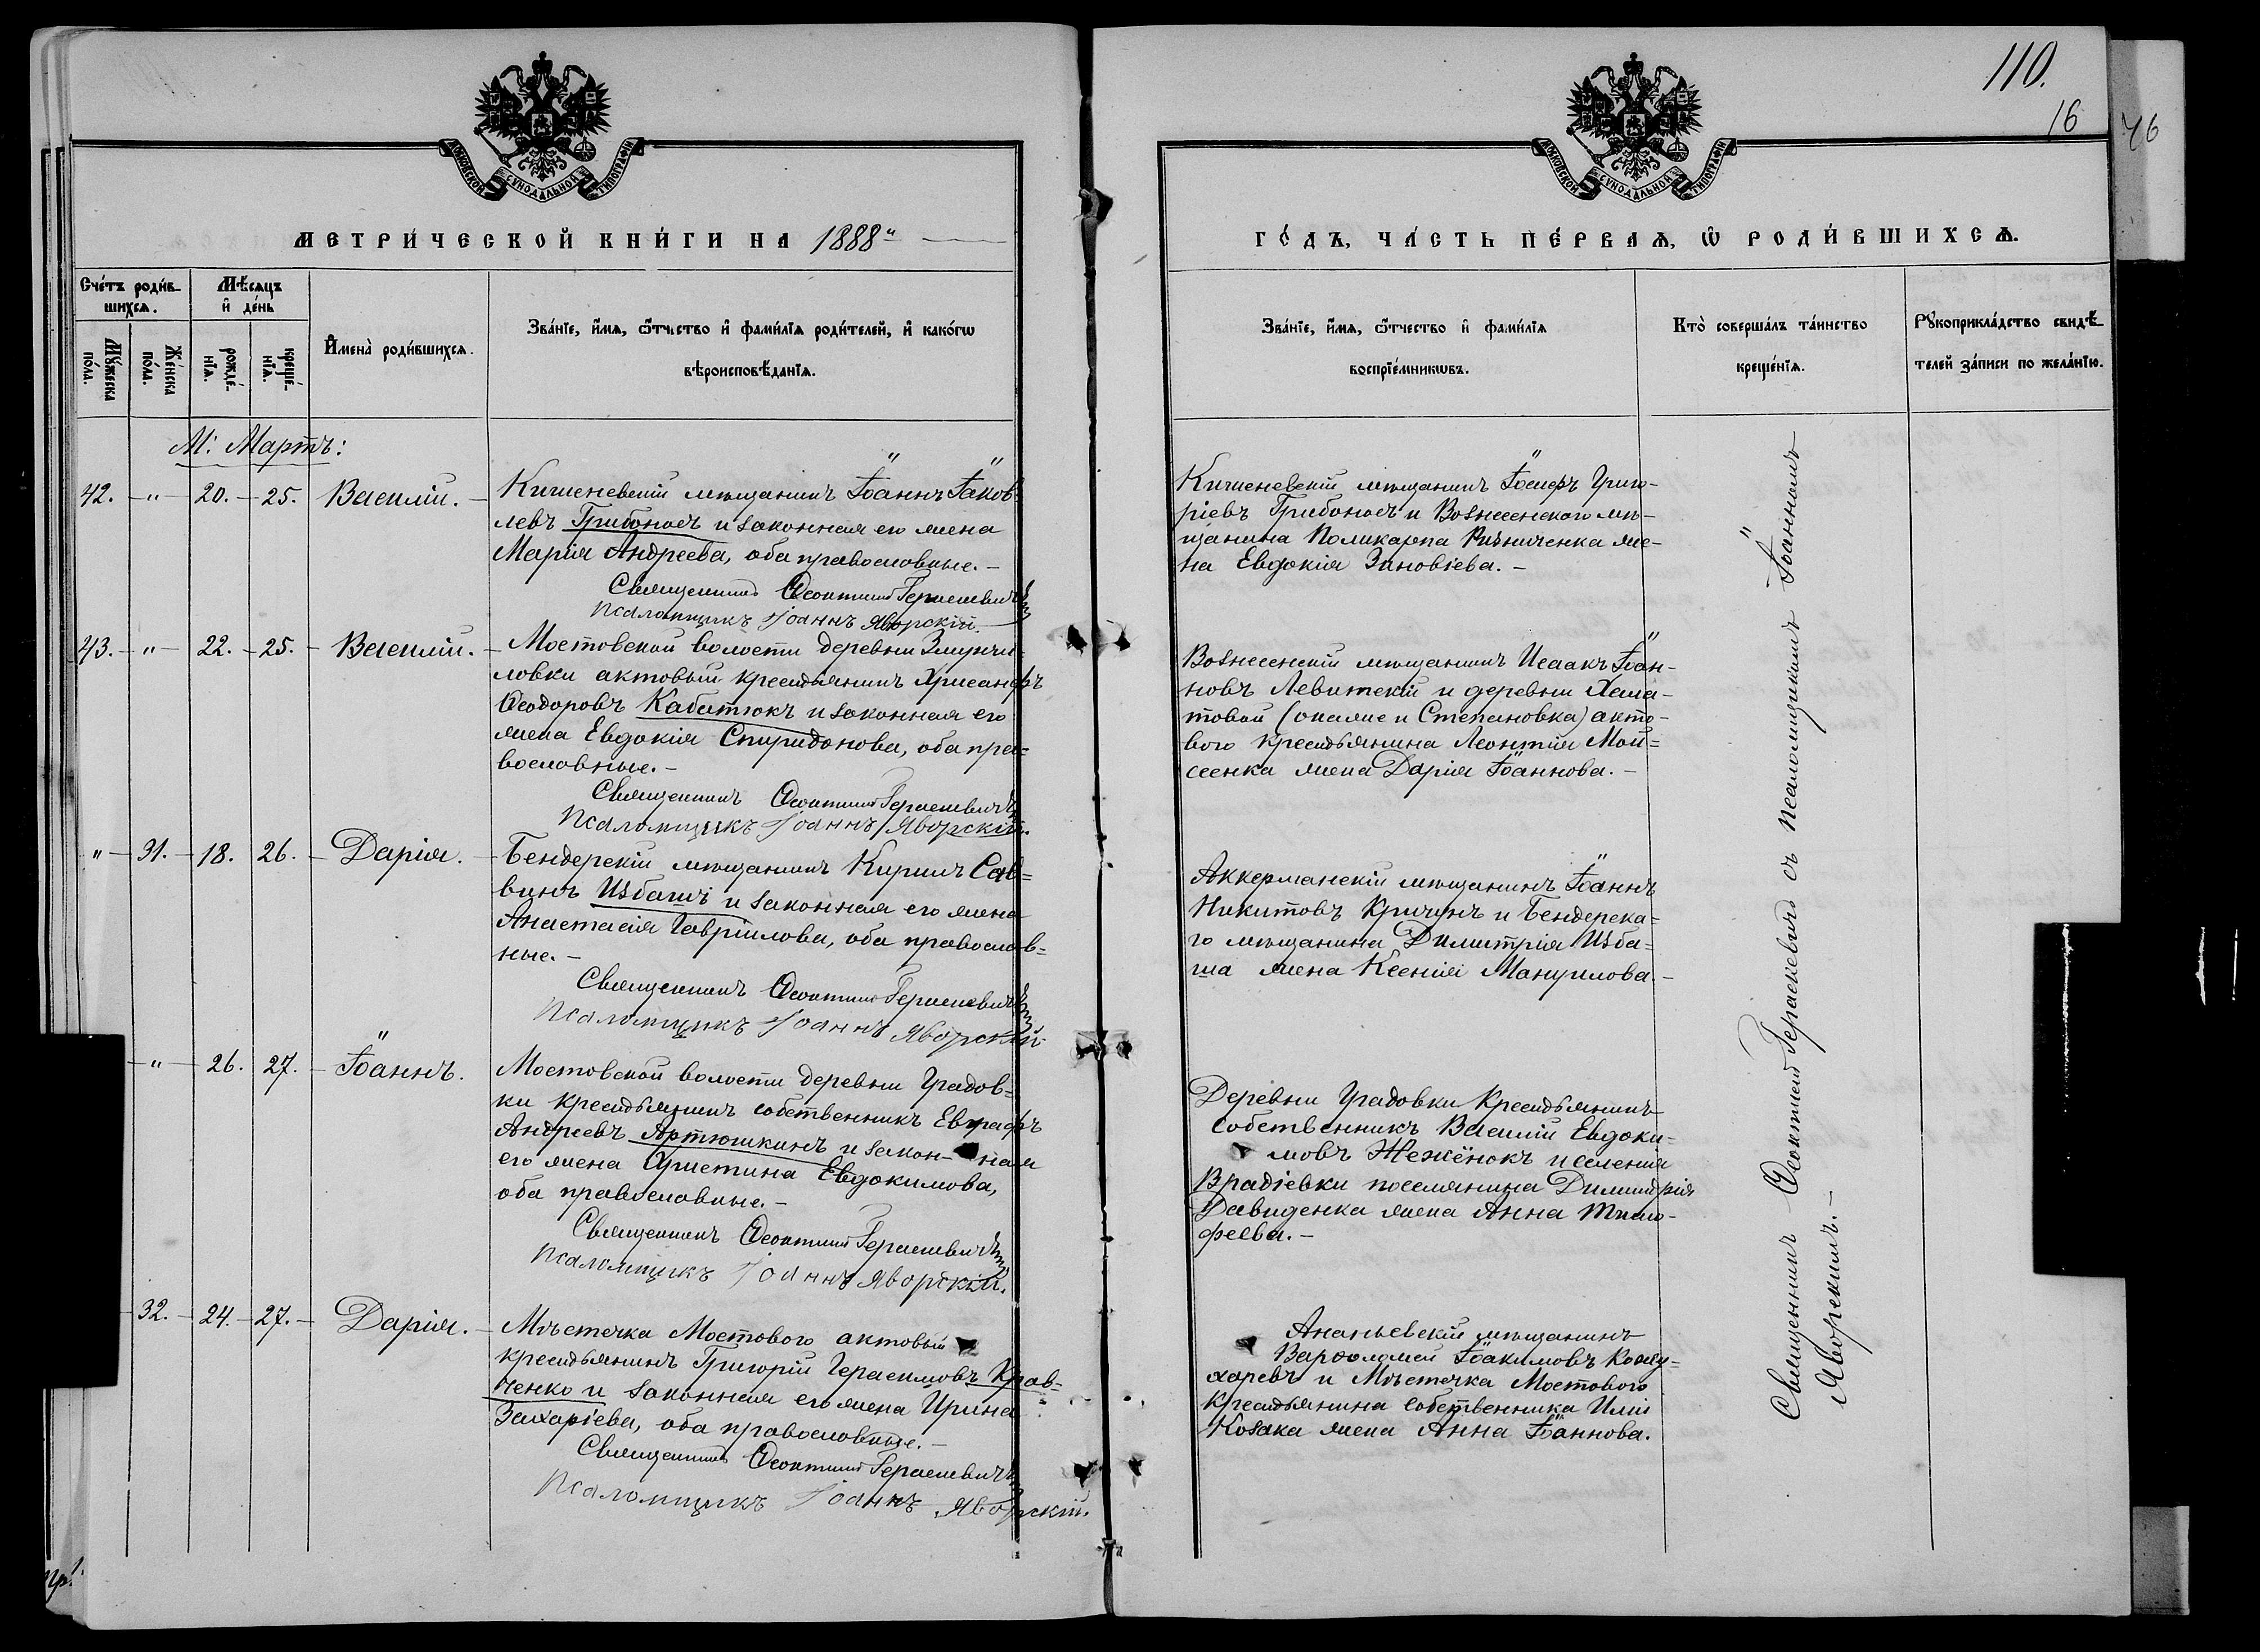 110.
16
46
МОСКОВСКОЙ СѴНОДАЛЬНОЙ ТИПОГРАФІИ
МОСКОВСКОЙ СѴНОДАЛЬНОЙ ТИПОГРАФІИ
МЕТРИ́ЧЕСКОЙ КНИ́ГИ НА 1888"
ГО́ДЪ, ЧА́СТЬ ПЕ́РВАѦ, Ѡ҆ РОДИ́ВШИХСѦ.
Сче́тъ роди́в-
шихсѧ.
Мѣ́сѧцъ
и҆ де́нь
Мꙋ́жеска
по́ла.
Же́нска
по́ла.
рожде́-
нїѧ.
креще́-
нїѧ.
И҆мена̀ роди́вшихсѧ.
Зва́нїе, и҆́мѧ, ѻ҆́тчество и҆ фами́лїѧ роди́телей, и҆ како́гѡ
вѣроисповѣ́данїѧ.
Зва́нїе, и҆́мѧ, ѻ҆́тчество и҆ фами́лїѧ
воспрїе́мникѡвъ.
Кто̀ соверша́лъ та́инство
креще́нїѧ.
Рꙋкоприкла́дство свидѣ́-
телей за́писи по жела́нїю.
М: Мартъ:
42. - " - 20. - 25. Василій. -
Кишеневскій мѣщанинъ Іоаннъ Іаков-
левъ Грибоносъ и законная его жена
Марія Андреева, оба православные. -
Священникъ Ѳеоктистъ Гераскевичъ
Псаломщикъ Іоаннъ Яворскій.
Кишеневскій мѣщанинъ Іосифъ Григо-
ріевъ Грибоносъ и Вознесенскаго мѣ-
щанина Поликарпа Рѣзниченка же-
на Евдокія Зиновіева. -
43. - " - 22. - 25. - Василій. -
Мостовской волости деревни
ловки актовый крестьянинъ Хрисанфъ
Ѳеодоровъ Кабатюкъ и законная его
жена Евдокія Спиридонова, оба пра=
вославные. -
Священникъ Ѳеоктистъ Гераскевичъ
Псаломщикъ Іоаннъ Яворскій.
Вознесенскій мѣщанинъ Исаакъ Іоан-
новъ Левитскій и деревни Хама-
товой (онаже и Степановка) акто-
вого крестьянина Леонтія Мой=
сеенка жена Дарія Іоаннова. -
" - 31. - 18. 26. - Дарія. -
Бендерскій мѣщанинъ Кирилъ Сав=
винъ Избашъ и законная его жена
Анастасія Гавріилова, оба православ=
ные. -
Священникъ Ѳеоктистъ Гераскевичъ
Псаломщикъ Іоаннъ Яворскій
Аккерманскій мѣщанинъ Іоаннъ
Никитовъ Кричунъ и Бендерска=
го мѣщанина Димитрія Изба=
ша жена Ксенія Мануилова. -
- " - 26. 27. - Іоаннъ.
Мостовской волости деревни Градов=
ки крестьянинъ собственникъ Евграфъ
Андреевъ Артюшкинъ и закон- ная
его жена Христина Евдокимова,
оба православные. -
Священникъ Ѳеоктистъ Гераскевичъ
Псаломщикъ Іоаннъ Яворскій.
Деревни Градовки крестьянинъ
собственникъ Василій Евдоки-
мовъ Жежёнокъ и селенія
Врадіевки поселянина Димитрія
Давиденка жена Анна Тимо-
феева. -
32. - 24. - 27. - Дарія. -
Мѣстечка Мостового актовый
крестьянинъ Григорій Герасимовъ Крав=
ченко и законная его жена Ирина
Захаріева, оба православные. -
Священникъ Ѳеоктистъ Гераскевичъ
Псаломщикъ Іоаннъ Яворскій.
Ананьевскій мѣщанинъ
Варѳоломей Іоакимовъ Кожу=
харевъ и Мѣстечка Мостового
крестьянина собственника Иліи
Козака жена Анна Іоаннова.
Священникъ Ѳеоктистъ Гераскевичъ съ псаломщикомъ Іоанномъ
Яворскимъ. -